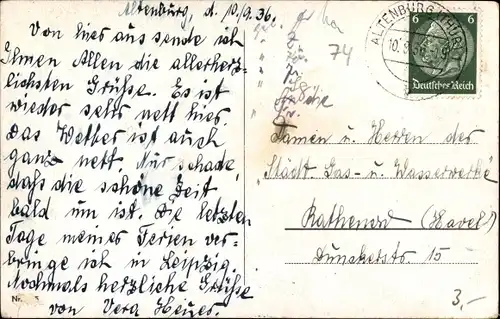 Altenburg, d. 10./9.36.
Von hier aus sende ich
Ihnen Allen die allerherz-
lichsten Grüße. Es ist
wieder sehr nett hier.
Das Wetter ist auch
ganz nett. Nur schade,
daß die schöne Zeit
bald um ist. Die letzten
Tage meiner Ferien ver-
bringe ich in Leipzig.
Nochmals herzliche Grüße
von Vera
Nr.
74
ALTENBURG (THÜR)
10.9.36
6 6
Deutsches Reich
An die
Damen u. Herren der
Städt. Gas- u. Wasserwerke
Rathenow (Havel)
Dunckerstr. 15
3,-